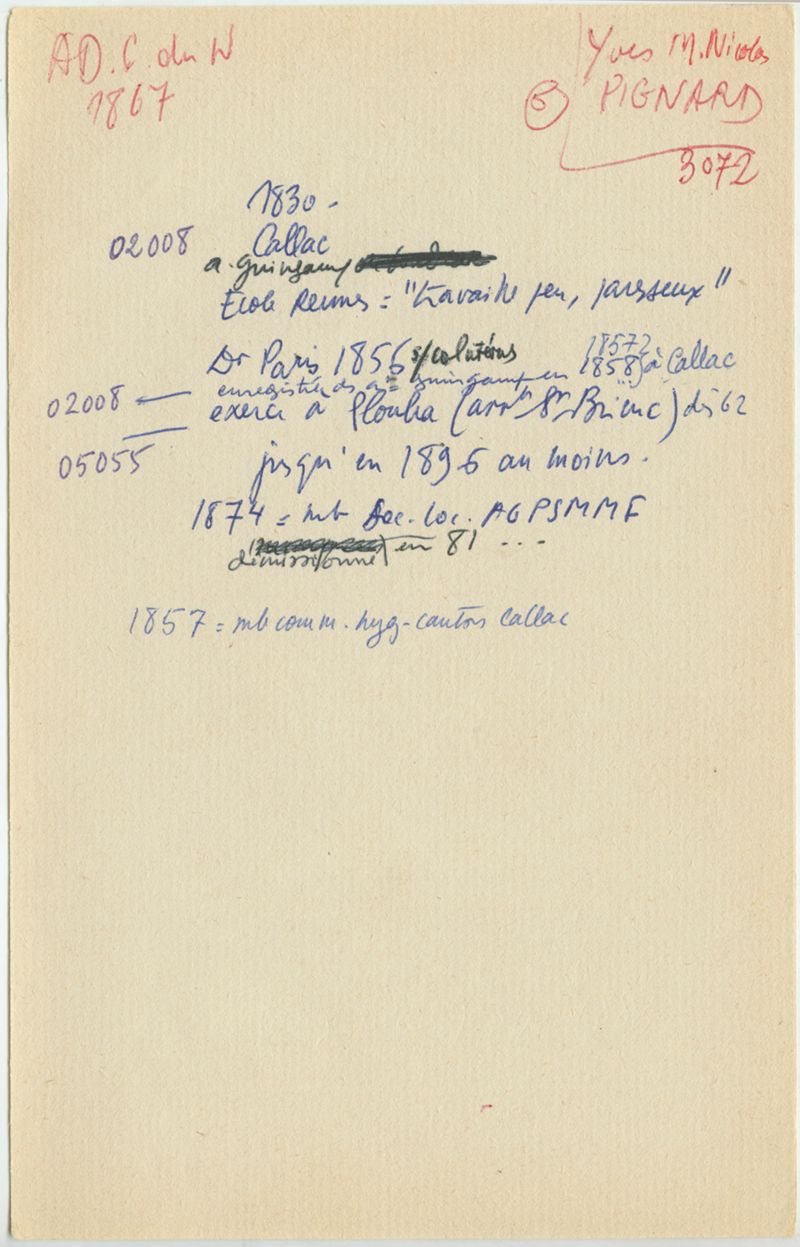 AD. C. du N
1867
Yves M. Nicolas
6 PIGNARD
3072
1830 -
02008 Callac
a. guingamp
Ecole Rennes = "travaille peu, paresseux"
Dr Paris 1856 s/col utérus 1857?
1858) à Callac
enregistré ds arrt guingamp en
02008 exerce à Plouha (arrt St Brieuc) dès 62
05055 jusqu'en 1896 au moins.
1874 = mb Soc. loc. AGPSMMF
démissionné en 81 ...
1857 = mb comm. hyg. cantons Callac